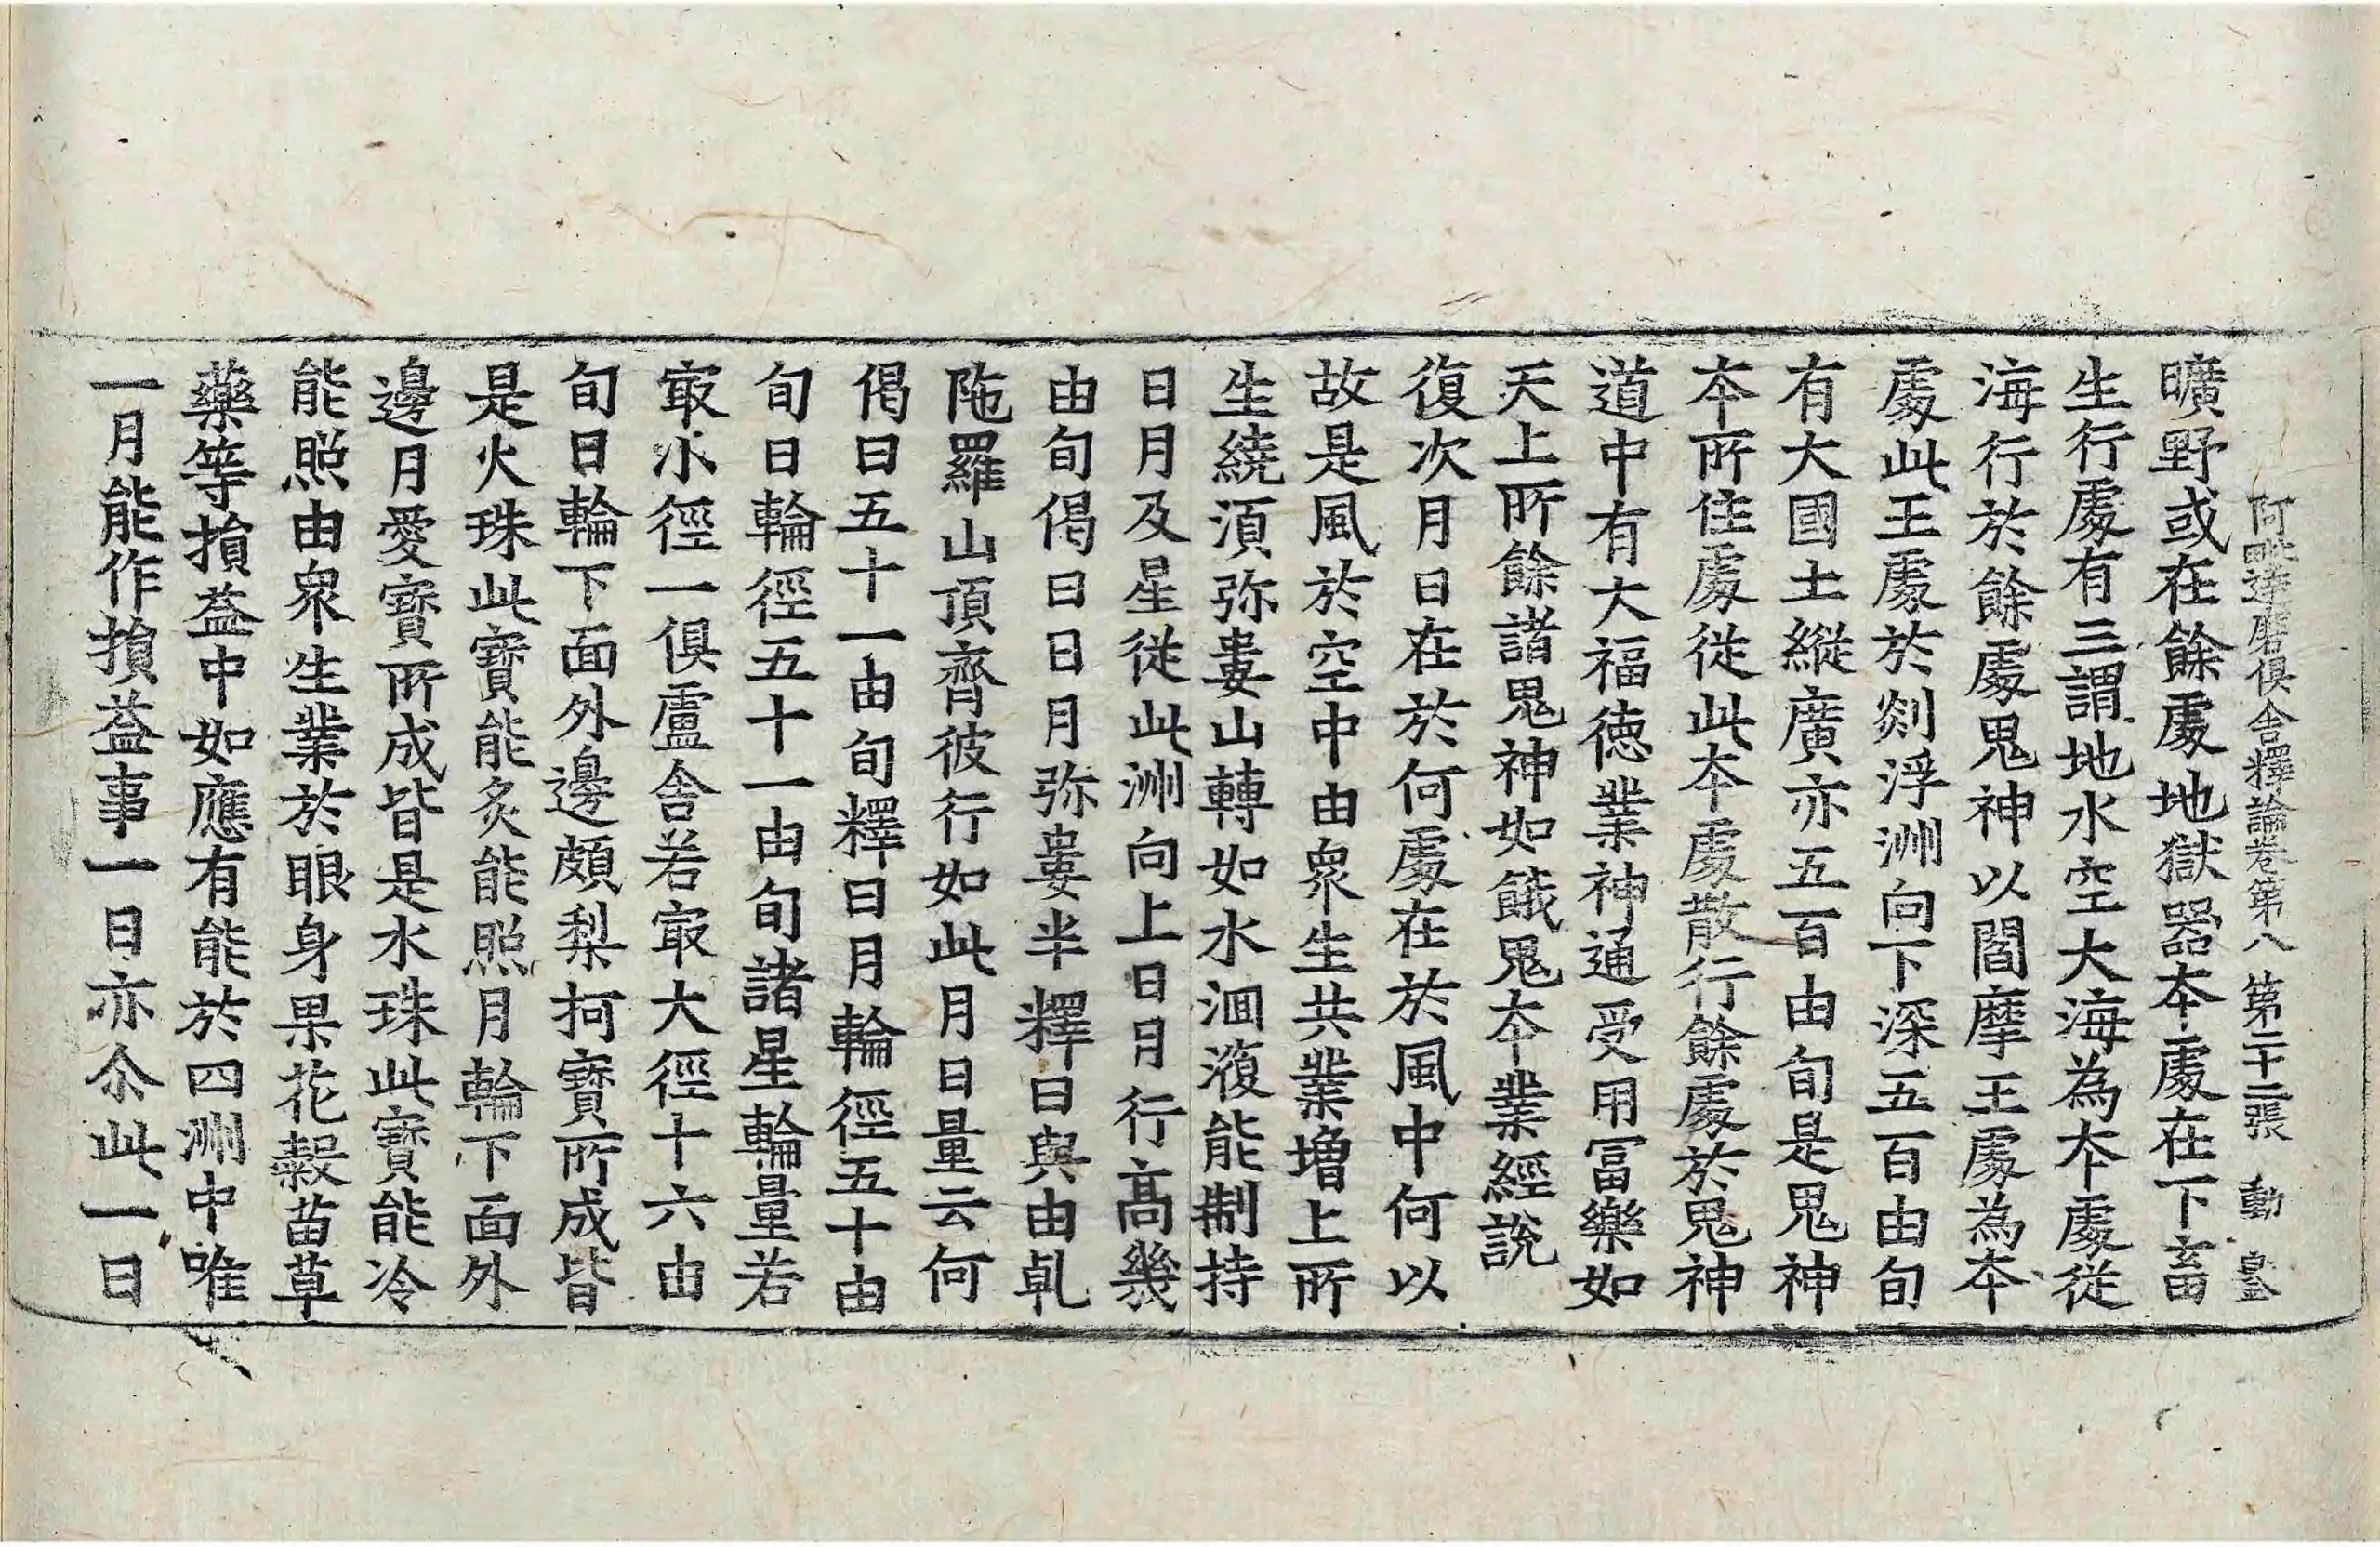 阿毗達磨俱舍釋論卷第八 第二十二張 動
曠野或在餘處地獄器本處在下畜
生行處有三謂地水空大海為本處從
海行於餘處鬼神以閻摩王處為本
處此王處於剡浮洲向下深五百由旬
有大國土縱廣亦五百由旬是鬼神
本所住處從此本處散行餘處於鬼神
道中有大福德業神通受用冨樂如
天上所餘諸鬼神如餓鬼本業經說
復次月日在於何處在於風中何以
故是風於空中由衆生共業增上所
生繞湏弥婁山轉如水洄澓能制持
日月及星從此洲向上日月行高幾
由旬偈曰日月弥婁半釋曰與由乹
陁羅山頂齊彼行如此月日量云何
偈曰五十一由旬釋曰月輪徑五十由
旬日輪徑五十一由旬諸星輪量若
㝡小徑一俱盧舍若㝡大徑十六由
旬日輪下面外邊頗梨柯寶所成皆
是火珠此寶能炙能照月輪下面外
邊月愛寶所成皆是水珠此寶能冷
能照由衆生業於眼身果花穀苗草
藥等損益中如應有能於四洲中唯
一月能作損益事一日亦尒此一日